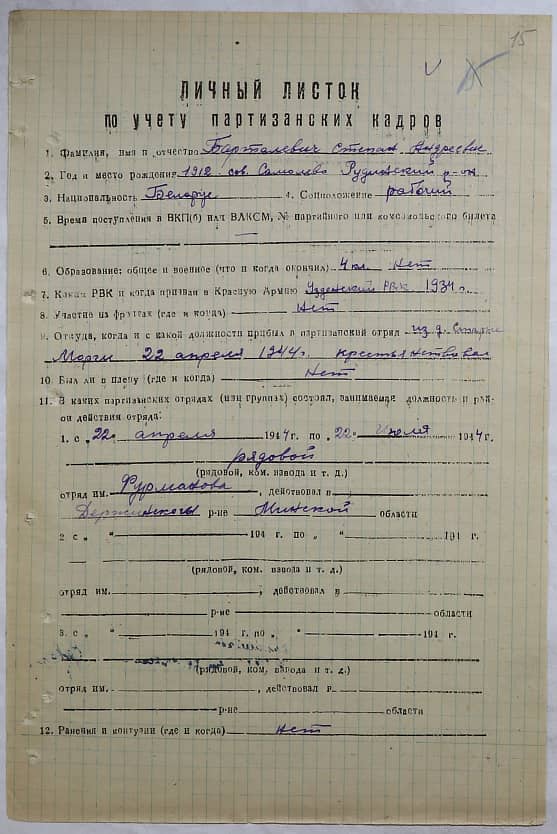 15
ЛИЧНЫЙ ЛИСТОК
по учету партизанских кадров
1. Фамилия, имя и отчество Барталевич Степан Андреевич
2. Год и место рождения 1912 сов. Самолево Руденский р-он
3. Национальность Белорус 4. Соцположение рабочий
5. Время поступления в ВКП(б) или ВЛКСМ, № партийного или комсомольского билета
—
6. Образование: общее и военное (что и когда окончил) 4 кл. Нет
7. Каким РВК и когда призван в Красную Армию Узденский РВК 1934 г.
8. Участие на фронтах (где и когда) Нет
9. Откуда, когда и с какой должности прибыл в партизанский отряд из д.
Морги 22 апреля 1944 г. крестьянствовал
10. Был ли в плену (где и когда) Нет
11. В каких партизанских отрядах (или группах) состоял, занимаемая должность и рай-
он действия отряда:
1. с „22„ апреля 1944 г. по „22„ июля 1944 г.
рядовой
(рядовой, ком. взвода и т. д.)
отряд им. Фурманова, действовал в
Дзержинского р-не Минской области
2 с „ “ 194 г. по „ “ 194 г.
(рядовой, ком. взвода и т. д.)
отряд им. , действовал в
р-не области
3. с „ “ 194 г. по „ “ 194 г.
(рядовой, ком. взвода и т. д.)
отряд им. , действовал в
р-не области
12. Ранения и контузии (где и когда) нет